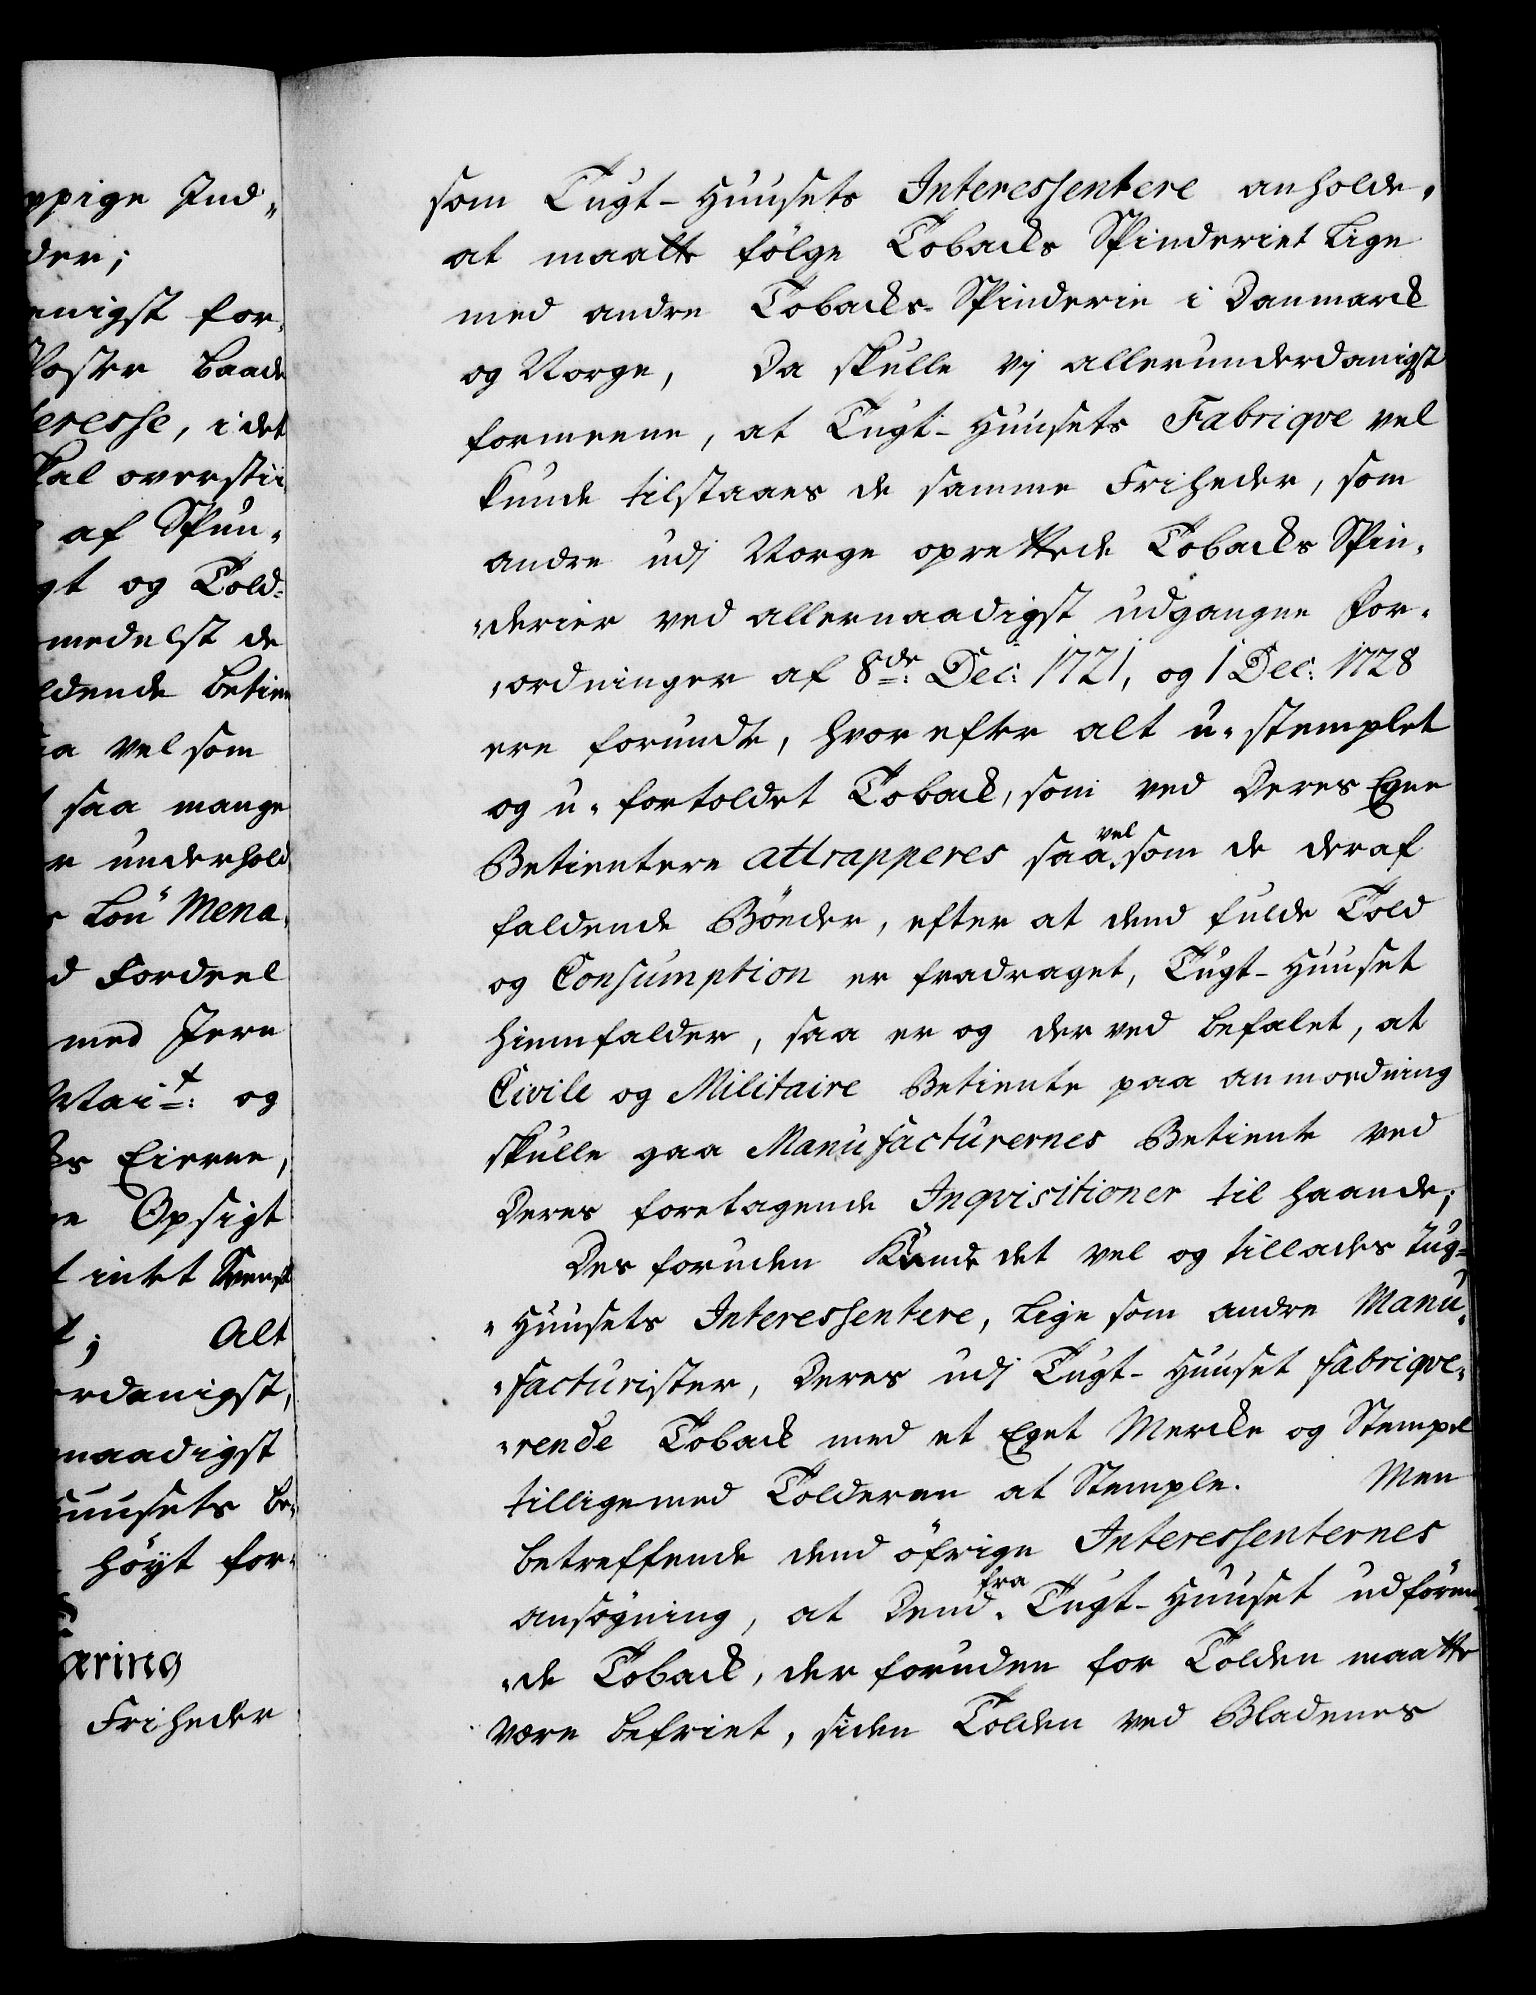 ypige Ind-
der;
enigst for-
Poster baade
teresse, i det
skal overstii-
af Spun-
gt og Told-
medelst de
ldende betien
saa vel som
saa mange
r underhold
Løn Mena-
d Fordeel
med Jern
Mai.t og
Eierne,
Opsigt
intet Svensk
t; Alt
rdanigst,
naadigst
huusets be-
høyt for-
æring
Friheder
som Tugt-Huusets Interessentere anholde,
at maatte følge Tobacks Spinderiet lige
med andre Tobacks-Spinderie i Danmarck
og Norge, Da skulle vj allerunderdanigst
formeene, at Tugt-Huusets Fabriqve vel
kunde tilstaaes de samme Friheder, som
andre udj Norge oprettede Tobacks Spin-
-derier ved allernaadigst udgangne For-
-ordninger af 8de Dec: 1721, og 1 Dec: 1728
ere forundt, hvor efter alt u-stemplet
og u-fortoldet Toback, som ved Deres Egne
Betientere attrapperes saa vel som de deraf
faldende Bøeder, efter at dend fulde Told
og Consumption er fradraget, Tugt-Huuset
hiemfalder, saa er og der ved befalet, at
Civile og Militaire Betiente paa anmodning
skulle gaa Manufacturernes Betiente ved
Deres foretagende Inqvisitioner til haande;
Des foruden Kunde det vel og tillades Tug-
-Huusets Interessentere, lige som andre Manu-
-facturister, Deres udj Tugt-Huuset fabriqve-
-rende Toback med et Eget Mercke og Stempel
tilligemed Tolderen at Stemple. Men
betreffende dend øfrige Interessenternes
ansøgning, at Dend fra Tugt-Huuset udføren-
-de Toback, der foruden for Tolden maatte
være befriet, siden Tolden ved Bladenes